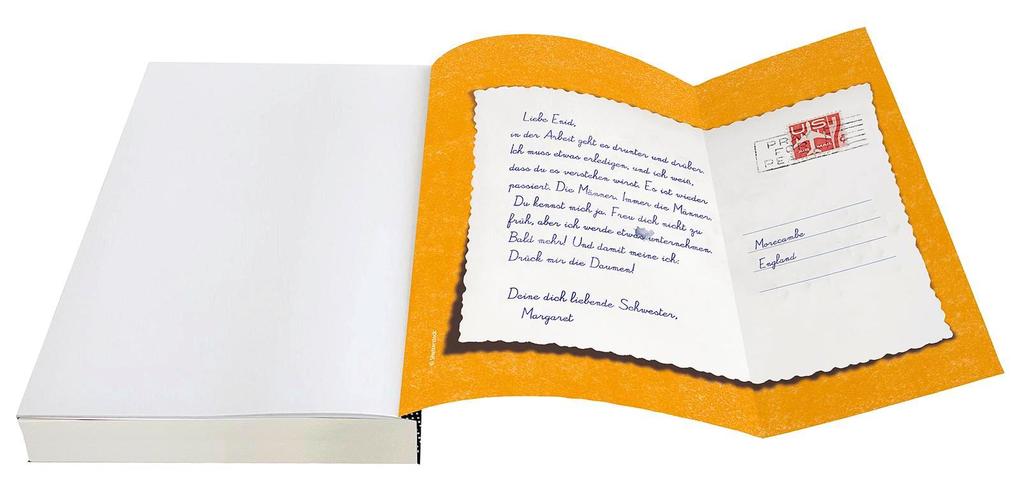 Liebe Enid,
in der Arbeit geht es drunter und drüber.
Ich muss etwas erledigen, und ich weiß,
dass du es verstehen wirst. Es ist wieder
passiert. Die Männer. Immer die Männer.
Du kennst mich ja. Freu dich nicht zu
früh, aber ich werde etwas unternehmen.
Bald mehr! Und damit meine ich:
Drück mir die Daumen!
Deine dich liebende Schwester,
Margaret
US
7¢
AIR MAIL
PR
FO
PE
Morecambe
England
© Shutterstock